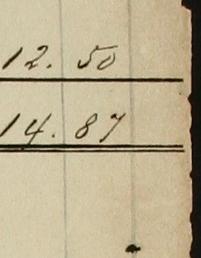 12. 50
14. 87